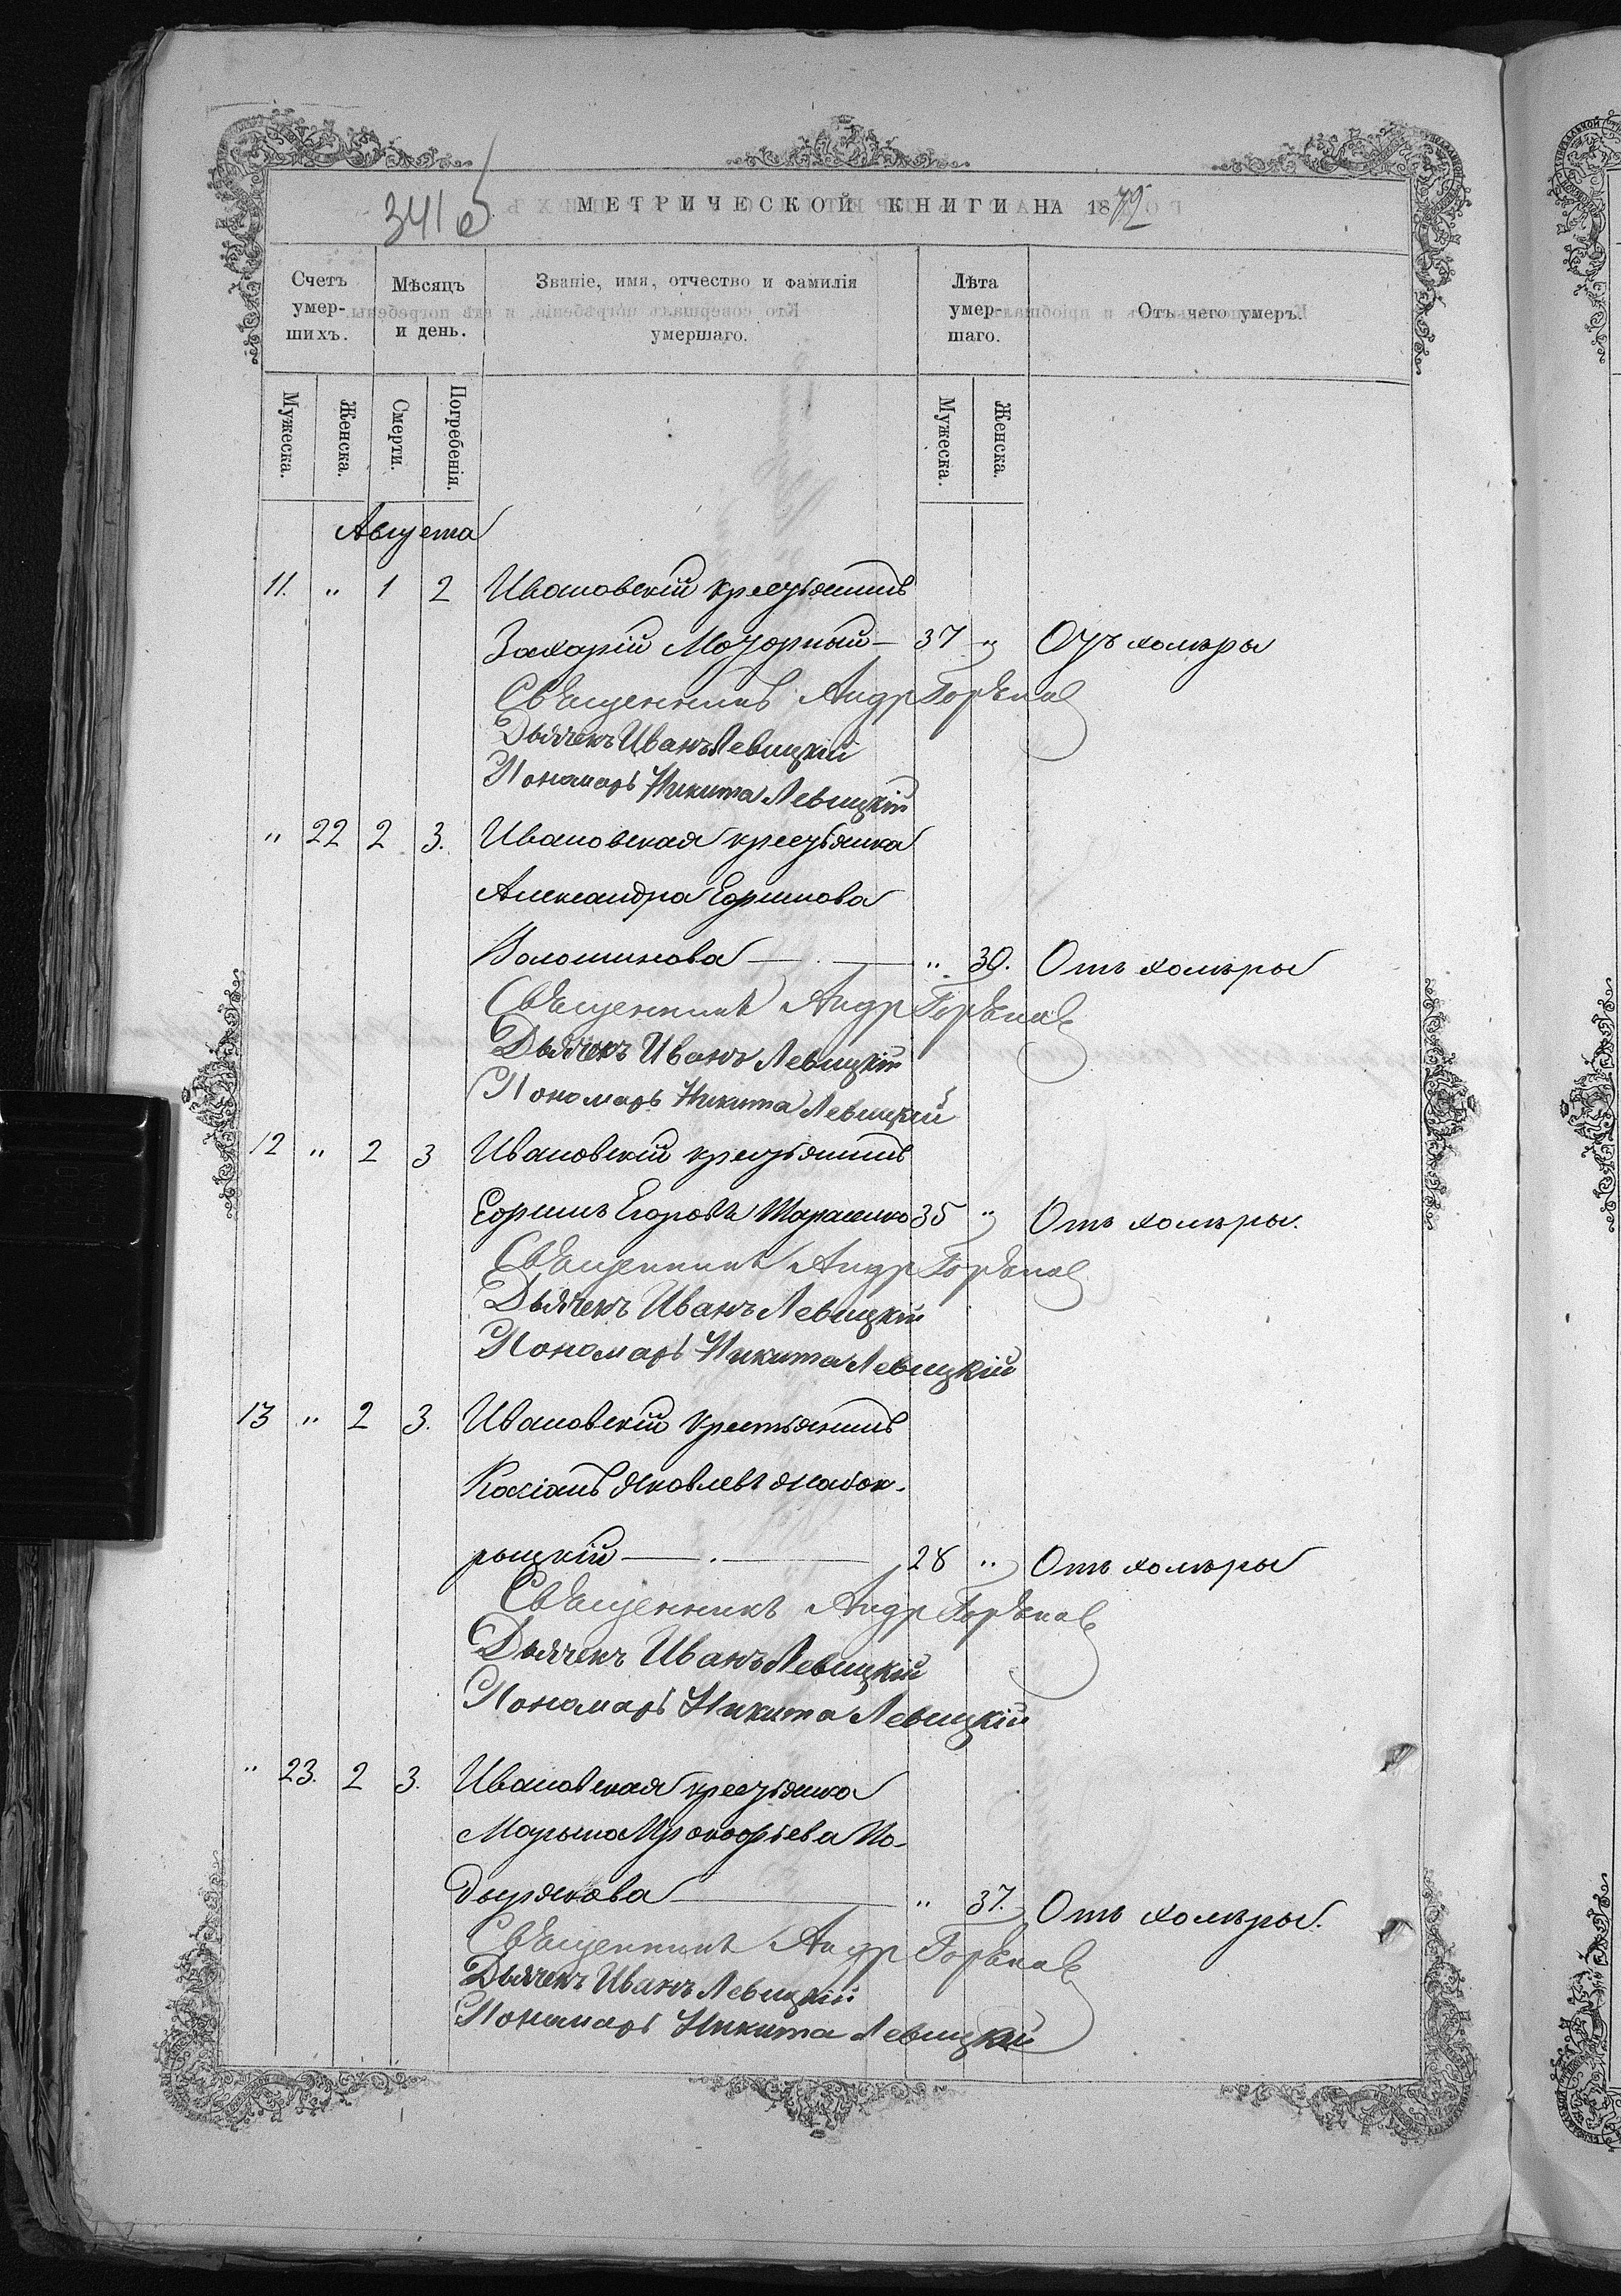 341 об
МЕТРИЧЕСКОЙ КНИГИ НА 1872
Счетъ умер-шихъ.
Мѣсяцъ и день.
Званіе, имя, отчество и фамилія умершаго.
Лѣта умер-шаго.
Отъ чего умеръ.
Мужеска.
Женска.
Смерти.
Погребенія.
Мужеска.
Женска.
Августа
11. " 1 2 Ивановскій крестьянинъ
Захарій Мозорный — 37 " Отъ холеры
Священникъ Андр
Дьячекъ Иванъ Левицкій
Пономарь Никита Левицкій
" 22 2 3. Ивановская крестьянка
Александра Ефимова
Волошинова — " 30. Отъ холеры
Священникъ Андр
Дьячекъ Иванъ Левицкій
Пономарь Никита Левицкій
12 " 2 3 Ивановскій крестьянинъ
Ефимъ Егоровъ Тарасенко 35 " Отъ холеры.
Священникъ Андр
Дьячекъ Иванъ Левицкій
Пономарь Никита Левицкій
13 " 2 3. Ивановскій крестьянинъ
Касіанъ Яковлевъ
28 " Отъ холеры
Священникъ Андр
Дьячекъ Иванъ Левицкій
Пономарь Никита Левицкій
" 23. 2 3. Ивановская крестьянка
Прокофіева По-
дырякова — " 37. Отъ холеры.
Священникъ Андр
Дьячекъ Иванъ Левицкій
Пономарь Никита Левицкій